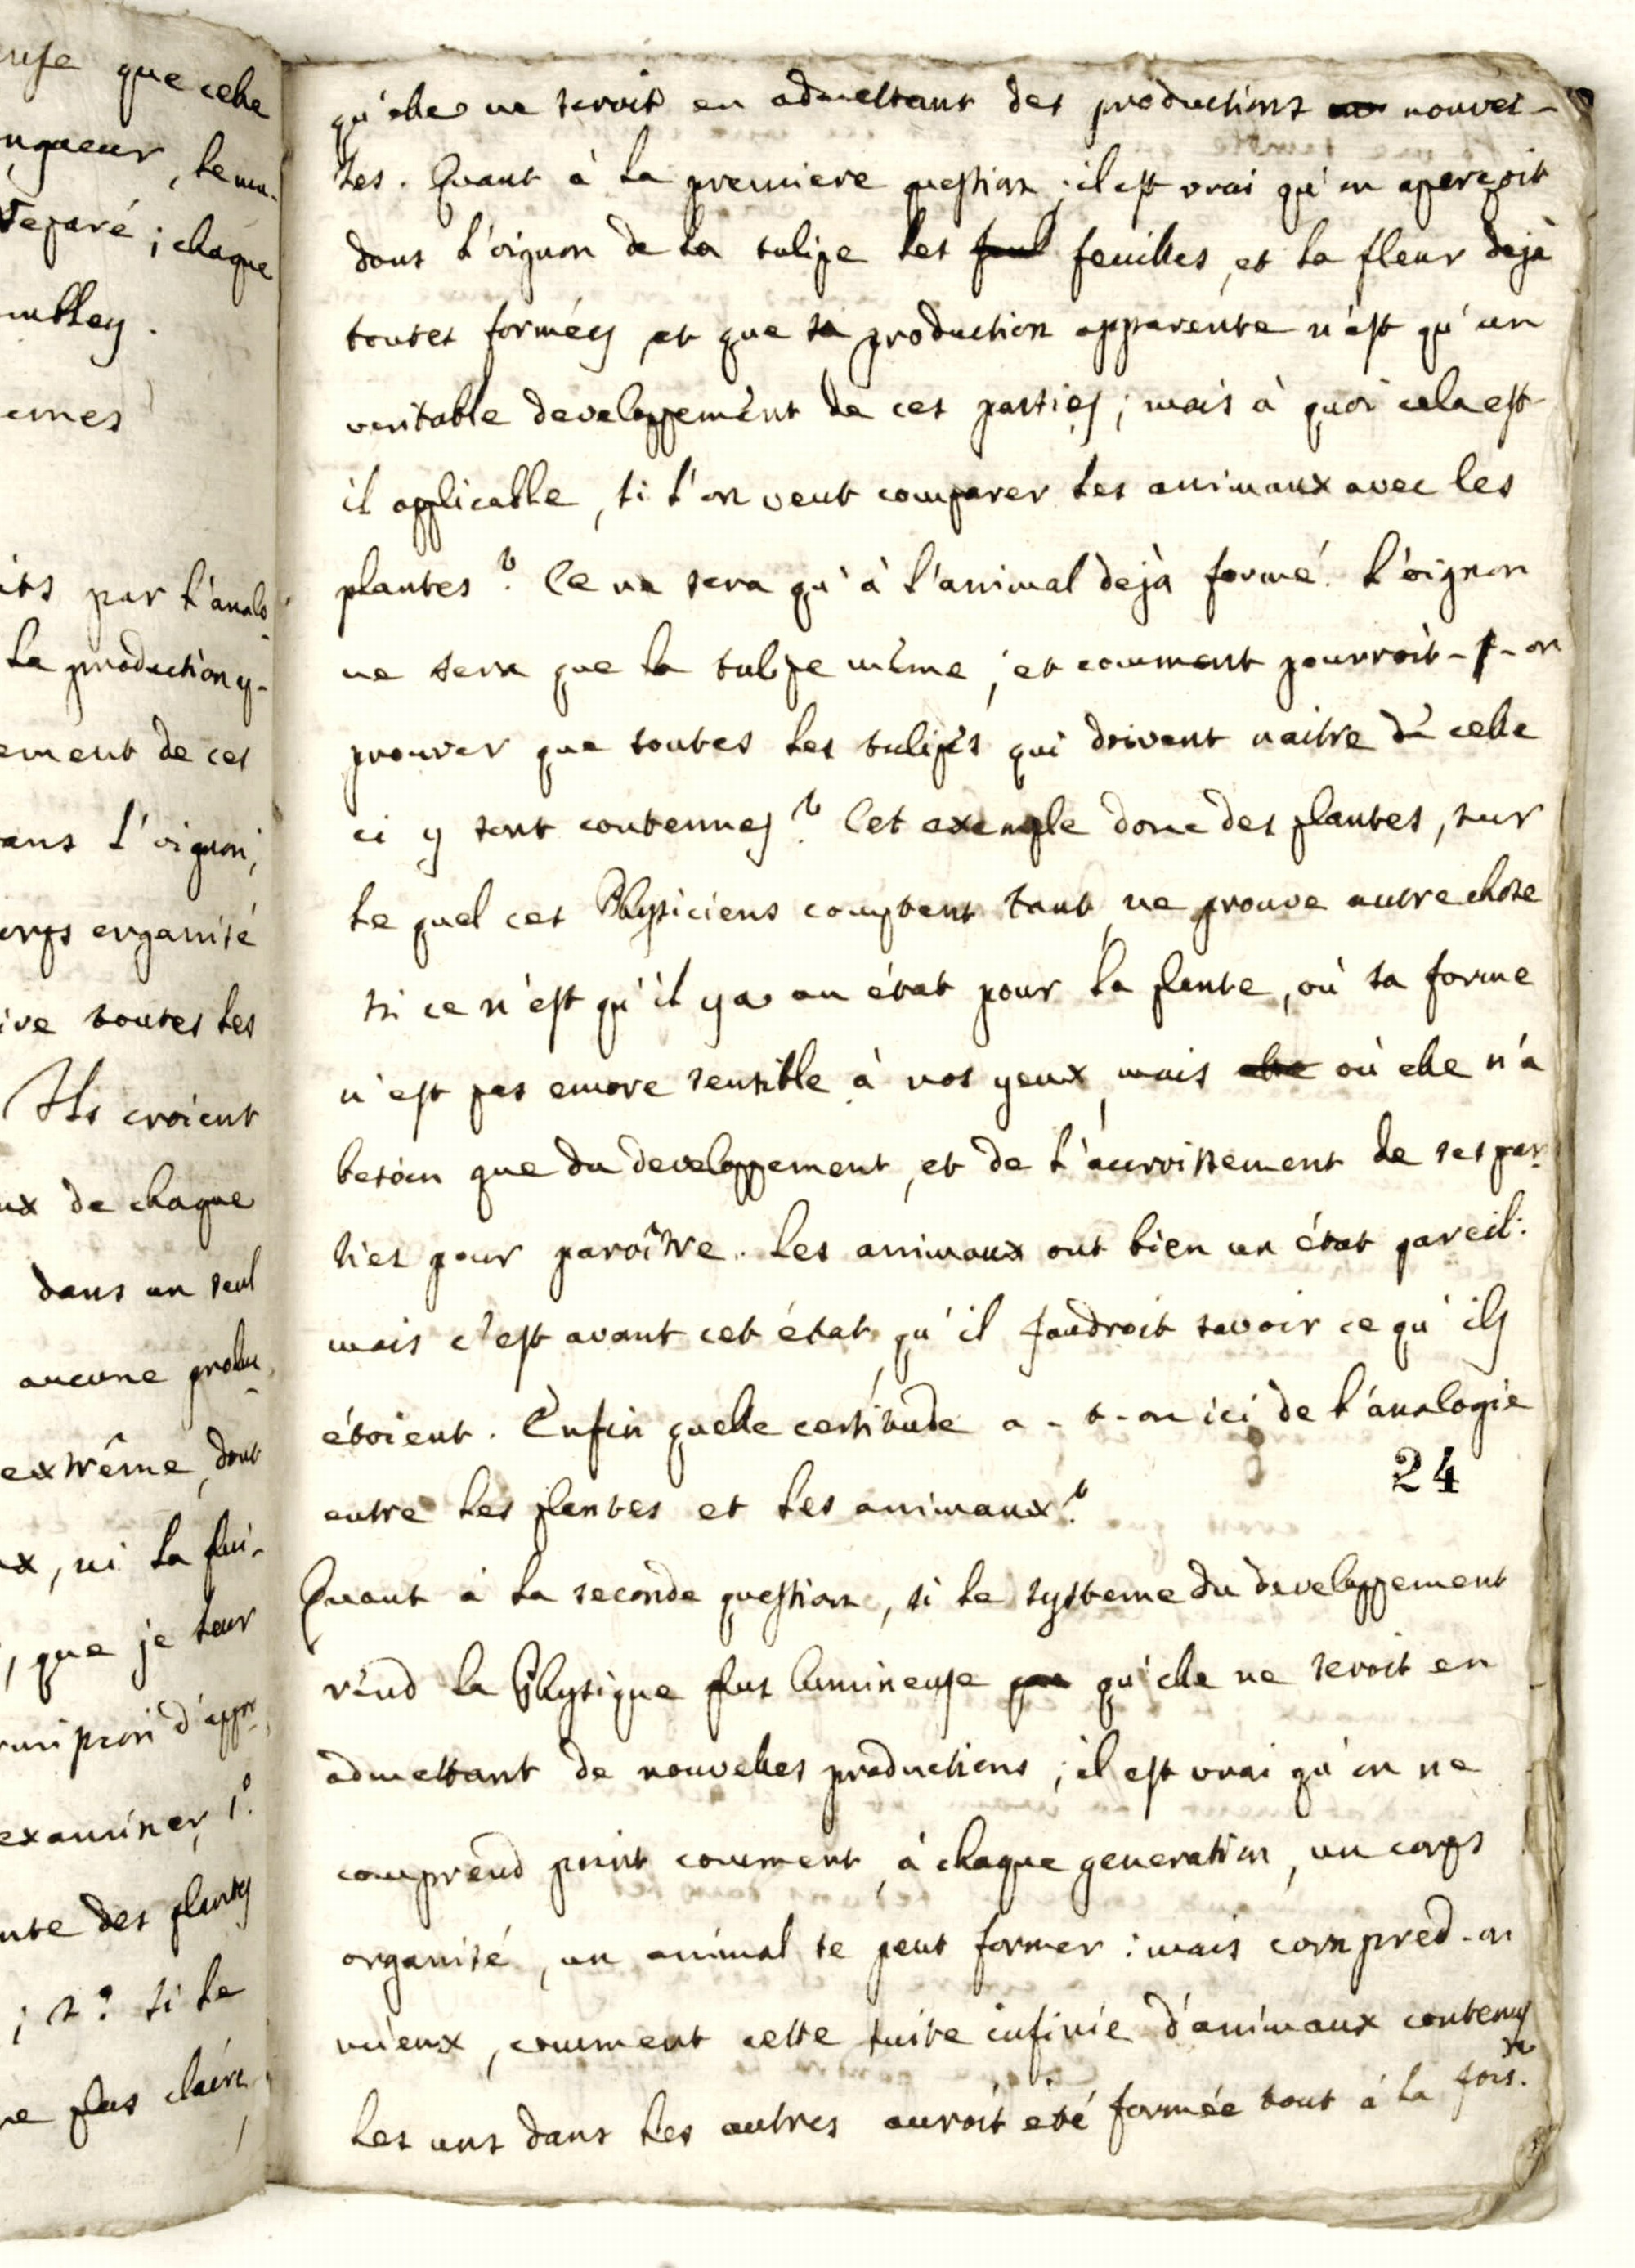 euse que celle
ngueur, le mu-
separé ; chaque
mbley.
emes
its par l'analo
la productiony-
ement de ces
ans l'oignon,
orps organisé
ive toutes les
Ils croient
ux de chaque
dans un seul
aucune produ
extrême, dont
ux, ni la flui-
, que je leur
d'appr
examiner, 1°.
nte des plantes
; 2°. si le
ne plus claire,
qu'elle ne seroit en admettant des productions nouvel-
les. Quant à la premiere question ; il est vrai qu'on aperçoit
dans l'oignon de la tulipe les feuilles, et la fleur dejà
toutes formées, et que sa production apparente n'est qu'un
veritable developpement de ces parties ; mais à quoi cela est
il applicable, si l'on veut comparer les animaux avec les
plantes ? Ce ne sera qu'à l'animal dejà formé. L'oignon
ne sera que la tulipe même ; et comment pourroit-t-on
prouver que toutes les tulipes qui doivent naitre de celle
ci y sont contenues ? Cet exemple donc des plantes, sur
le quel ces Physiciens comptent tant, ne prouve autre chose
si ce n'est qu'il y a un état pour la plante, où sa forme
n'est pas encore sensible à nos yeux, mais où elle n'a
besoin que du developpement, et de l'accroissement de ses par-
ties pour paroître. Les animaux ont bien un état pareil :
mais c'est avant cet état, qu'il faudroit savoir ce qu'ils
étoient. Enfin quelle certitude a-t-on ici de l'analogie
entre les plantes et les animaux ?
24
Quant à la seconde question, si le systeme du developpement
rend la Physique plus lumineuse qu'elle ne seroit en
admettant de nouvelles productions ; il est vrai qu'on ne
comprend point comment, à chaque generation, un corps
organisé, un animal se peut former : mais compred-on
mieux, comment cette suite infinie d'animaux contenus
les uns dans les autres auroit eté formée tout à la fois.